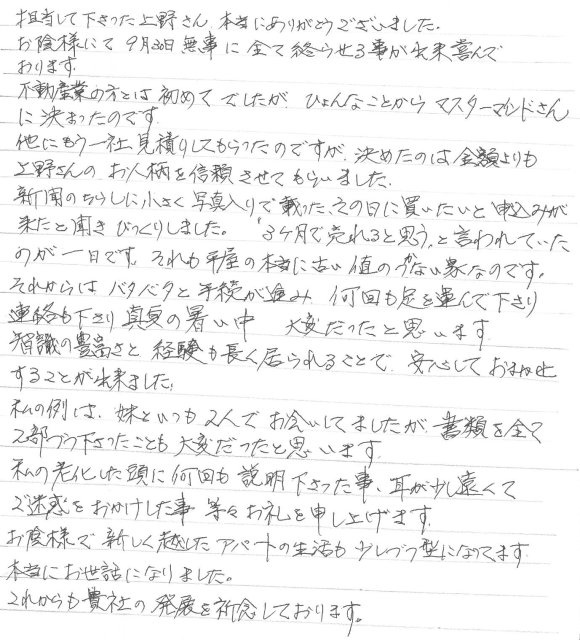 担当して下さった上野さん 本当にありがとうございました.
お陰様にて 9月30日 無事に 全て終らせる事が出来喜んで
おります.
不動産業の方とは 初めて でしたが ひょんなことから マスターマインドさん
に 決まったのです.
他にもう一社 見積りしてもらったのですが、決めたのは 金額よりも
上野さんの お人柄を 信頼 させて もらいました.
新聞のちらしに 小さく 写真入りで 載った、その日に 買いたいと 申込みが
来たと聞き びっくりしました。 "3ヶ月で 売れると思う" と 言われていた
のが 一日です. それも 平屋の 本当に 古い 値の つかない 家なのです。
それからは バタバタと 手続が 進み 何回も 足を 運んで 下さり
連絡も下さり 真夏の 暑い中 大変だったと 思います
智識の 豊富さと 経験も 長く 居られることで、安心して おまかせ
することが 出来ました.
私の例は、妹といつも 2人で お会いしてましたが、書類を 全て
2部づつ 下さったことも 大変だったと 思います.
私の 老化した 頭に 何回も 説明 下さった事、耳が少し遠くて
ご迷惑を おかけした事 等々 お礼を 申し上げます.
お陰様で 新しく 越した アパートの 生活も 少しづつ 型になってます
本当に お世話に なりました。
これからも 貴社の 発展を 祈念しております。